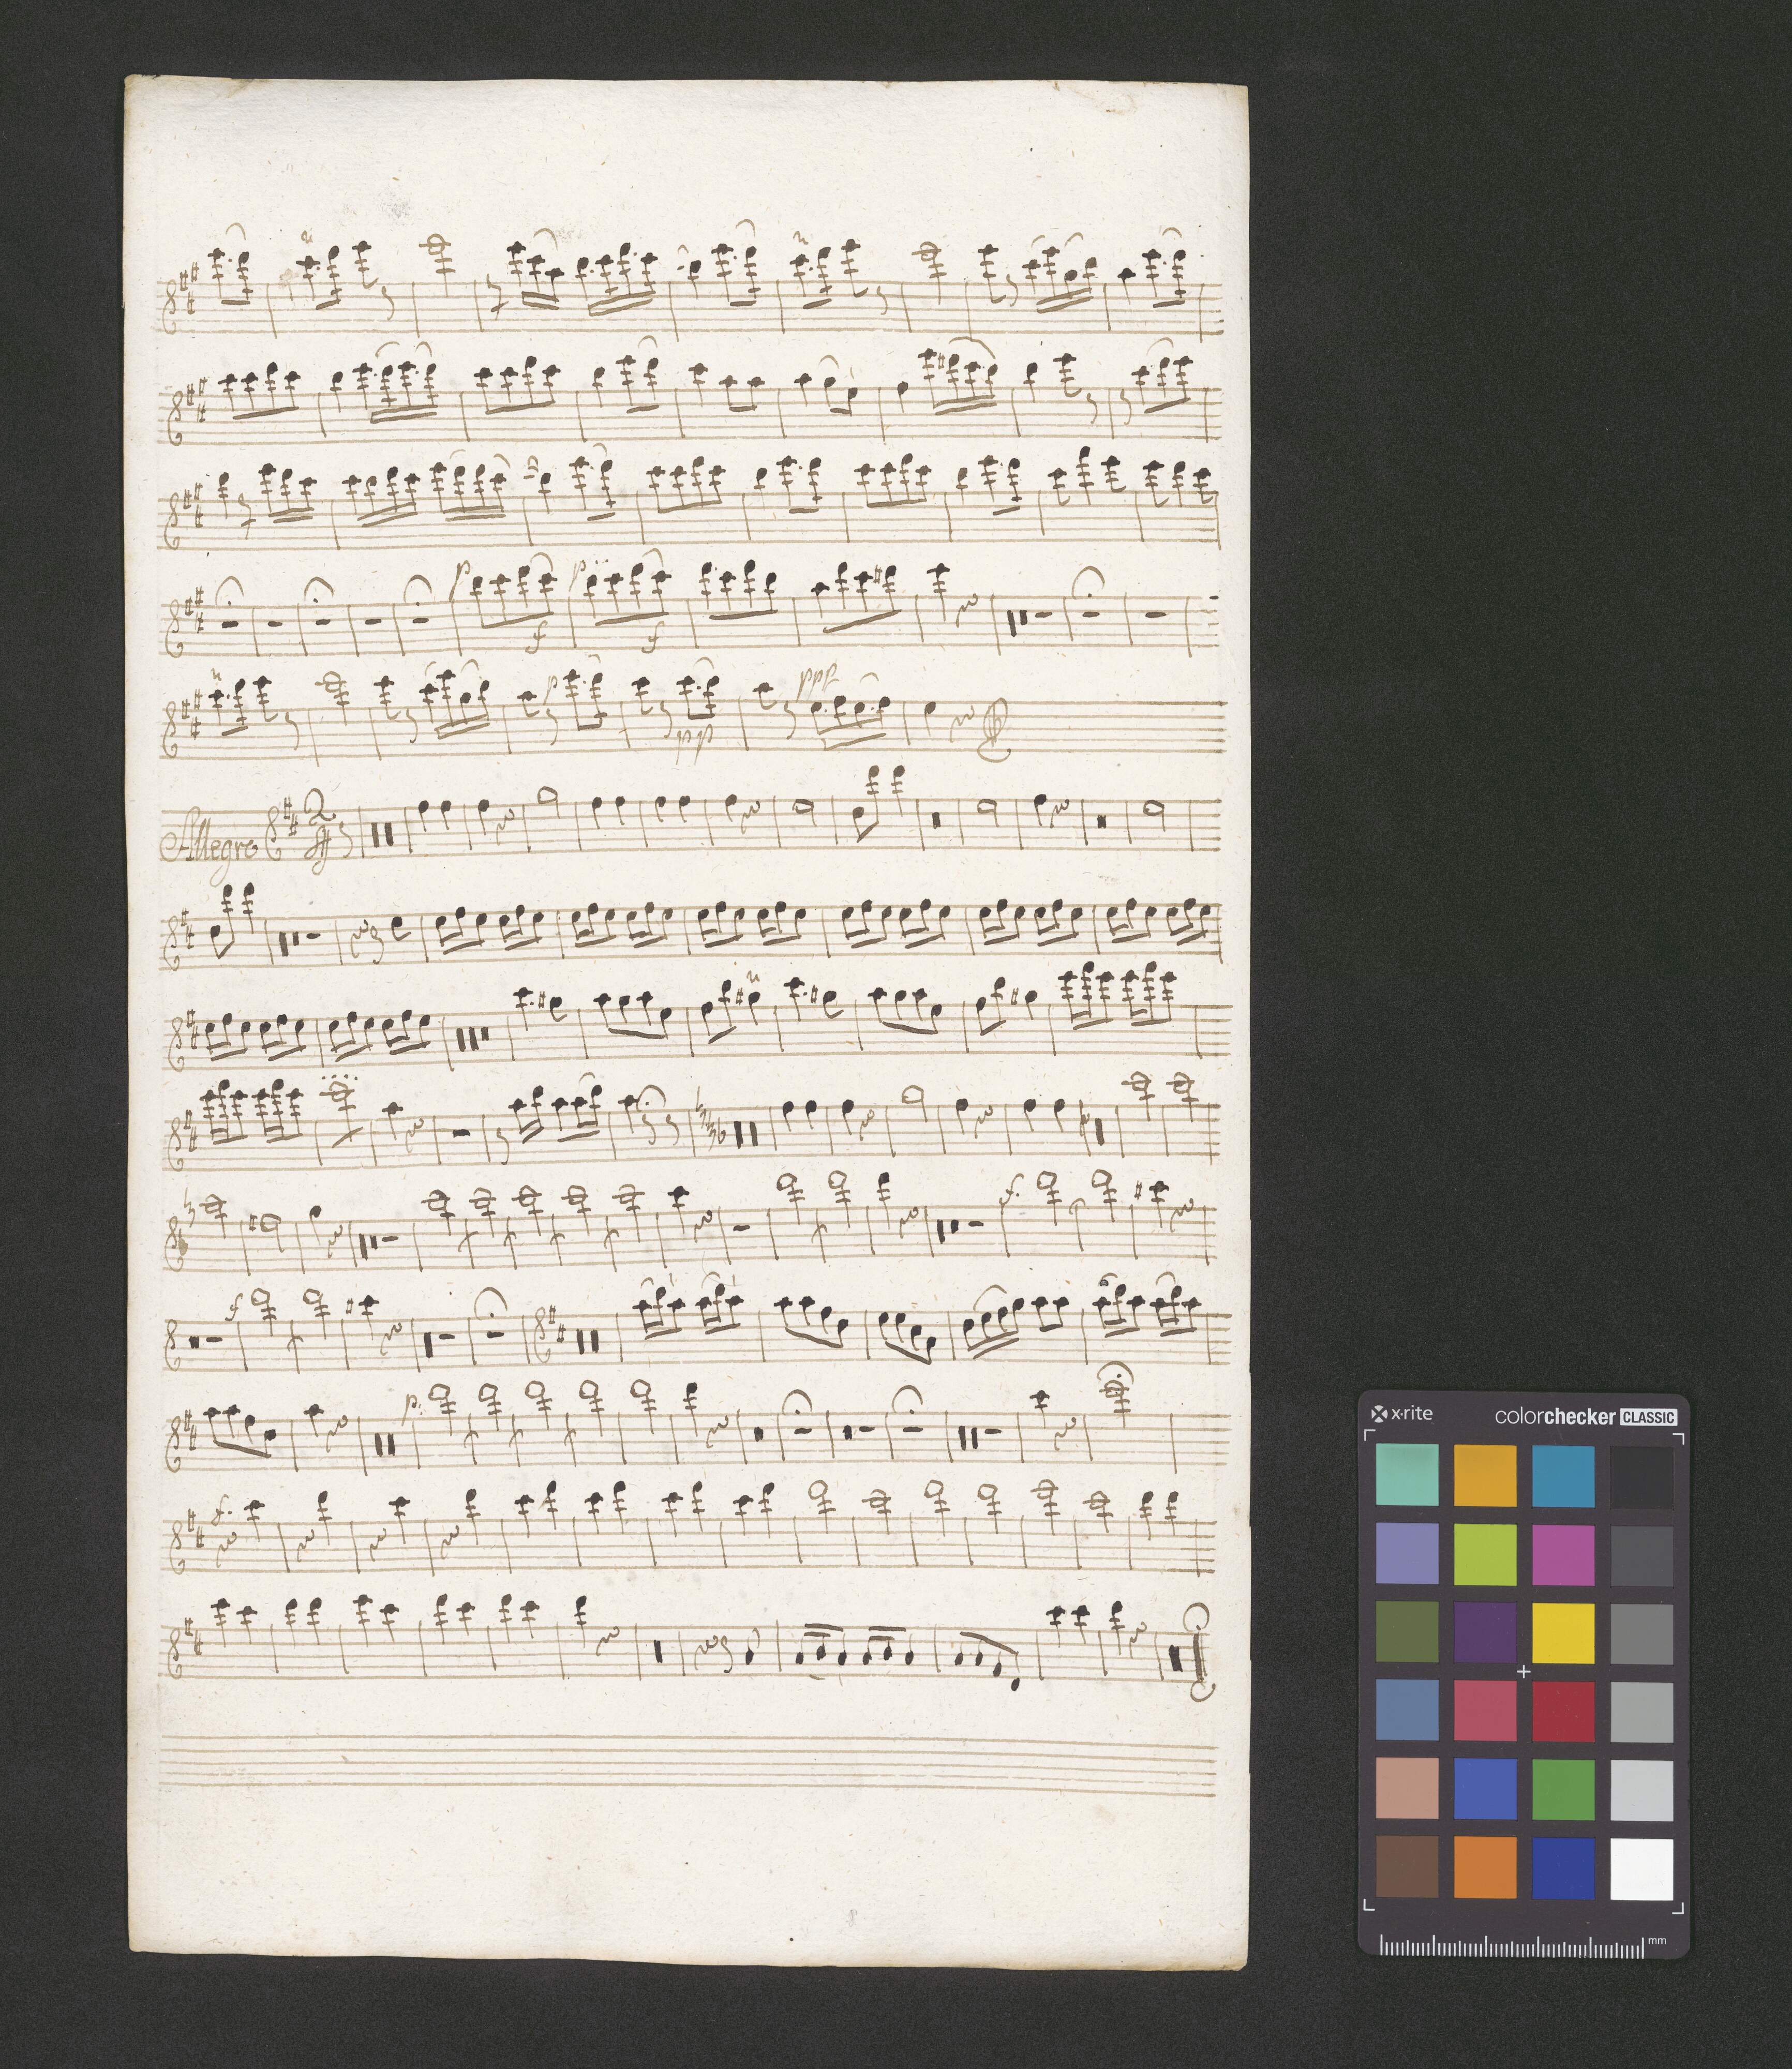 p f p f
p pp ppp
Allegro 2
f.
f
p:
f.
x·rite colorchecker CLASSIC
mm